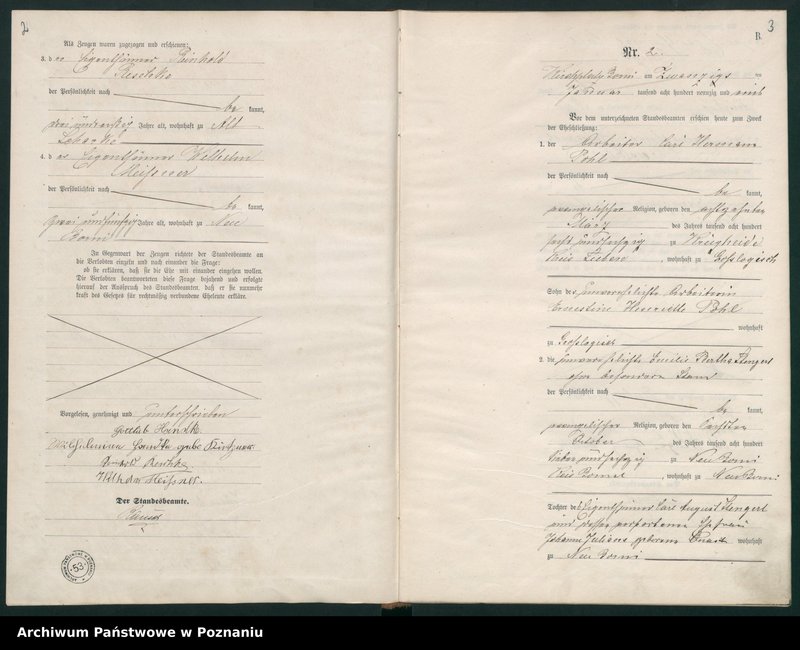 2
Als Zeugen waren zugezogen und erschienen:
3. der Eigenthümer Reinhold
Reschke
der Persönlichkeit nach
be kannt,
Jahre alt, wohnhaft zu Alt
4. der Eigenthümer Wilhelm
Meissner
der Persönlichkeit nach
be kannt,
Jahre alt, wohnhaft zu Neu
Bomi
In Gegenwart der Zeugen richtete der Standesbeamte an
die Verlobten einzeln und nach einander die Frage:
ob sie erklären, daß sie die Ehe mit einander eingehen wollen.
Die Verlobten beantworteten diese Frage bejahend und erfolgte
hierauf der Ausspruch des Standesbeamten, daß er sie nunmehr
kraft des Gesetzes für rechtmäßig verbundene Eheleute erkläre.
Vorgelesen, genehmigt und unterschrieben
Gottlob
Reinhold Reschke
Wilhelm Meissner.
Der Standesbeamte.
53
3
B.
Nr. 2.
Kirchplatz Bomi am Zwanzigsten
Januar tausend acht hundert neunzig und eins
Vor dem unterzeichneten Standesbeamten erschien heute zum Zweck
der Eheschließung:
1. der Arbeiter Carl Hermann
Pohl
der Persönlichkeit nach
be kannt,
evangelischer Religion, geboren den achtzehnten
März des Jahres tausend acht hundert
sechs und sechszig zu
Kreis, wohnhaft zu
Sohn der unverehelichten Arbeiterin
Ernestine Henriette Pohl
wohnhaft
zu
2. die unverehelichte Emilie Bertha Stengert
ohne besonderen Stand
der Persönlichkeit nach
be kannt,
evangelischer Religion, geboren den
October des Jahres tausend acht hundert
sieben und sechszig zu Neu Bomi
Kreis Bomst, wohnhaft zu Neu Bomi
Tochter des Eigenthümer Carl August Stengert
und dessen verstorbenen Ehefrau
Johanne Juliane geborene wohnhaft
zu Neu Bomi
Archiwum Państwowe w Poznaniu